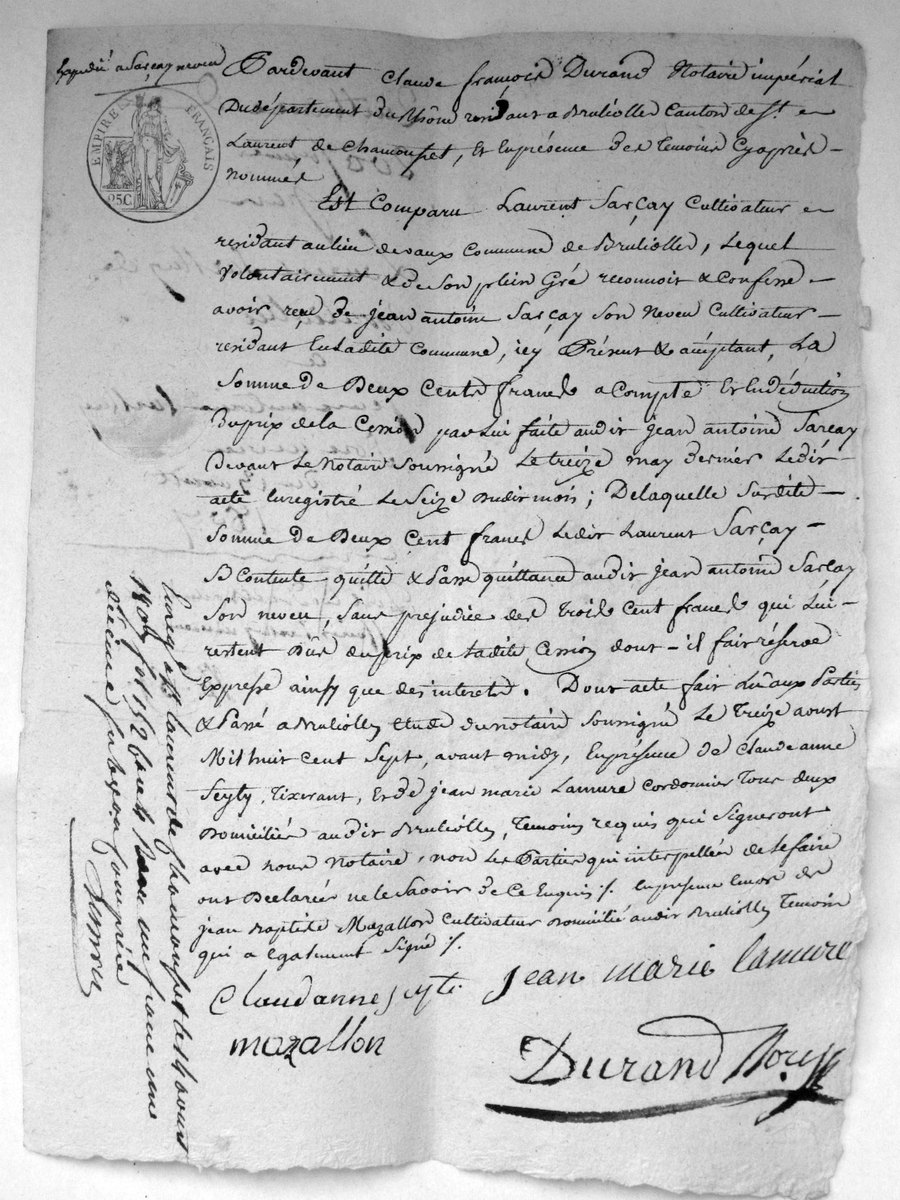 Expédié a Sarcay neveu
EMPIRE FRANÇAIS
25C.
Pardevant Claude françois Durand Notaire impérial
Du département du Rhône residant a Brulliolle Canton de St.
Laurent de Chamousset, Et En présence des Temoins Cyaprès
nommés
Est Comparu Laurent Sarçay Cultivateur
residant au lieu de vaux Commune de Brulliolles, Lequel
Volontairement & de Son plein Gré reconnoit & Confesse
avoir reçu de jean antoine Sarçay Son Neveu Cultivateur
residant En Ladite Commune, icy Présent & acceptant, La
Somme de Deux Cents francs a Compte Et En déduction
Du prix de la Cession par Lui faite audit jean antoine Sarcay
Devant Le Notaire Soussigné Le treize may dernier Ledit
acte Enregistré Le Seize dudit mois ; De laquelle Susdite
Somme de Deux Cent francs Ledit Laurent Sarçay
Se Contente quitte & Passe quittance audit jean antoine Sarcay
Son neveu, Sans prejudice des trois Cent francs qui Lui
restent Dûs du prix de Ladite Cession dont il fait réserve
Expresse ainsy que des interets. Dont acte fait Lû aux Parties
& Passé a Brulliolles etude du notaire Soussigné Le Treize aoust
Mil huit Cent Sept, avant midy, En présence de Claude anne
Seyty, Tixerant, Et de jean marie Lamure Cordonnier Tous deux
Domiciliés audit Brulliolles, Temoins requis qui Signeront
avec nous Notaire, non Les Parties qui interpellées de Le faire
ont Declarées ne le Savoir de Ce Enquis /. En presence Encore de
jean Baptiste Mazallon Cultivateur domicilié audit Brulliolles Temoin
qui a Egalement Signé /.
Claudanne seyti jean marie lamure
mazallon
Durand Nore
Enreg. à St laurent de Chamousset le 14 aoust
1807 fol 152 reçu un franc un
décime Subvon Comprise